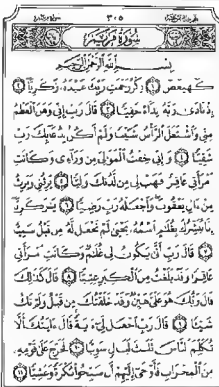 ٣٠٥
سُورَةُ مَرْيَمَ
بِسْمِ ٱللَّهِ ٱلرَّحْمَٰنِ ٱلرَّحِيمِ
كٓهيعٓصٓ ١ ذِكْرُ رَحْمَتِ رَبِّكَ عَبْدَهُۥ زَكَرِيَّآ ٢
إِذْ نَادَىٰ رَبَّهُۥ نِدَآءً خَفِيًّا ٣ قَالَ رَبِّ إِنِّى وَهَنَ ٱلْعَظْمُ
مِنِّى وَٱشْتَعَلَ ٱلرَّأْسُ شَيْبًا وَلَمْ أَكُنۢ بِدُعَآئِكَ رَبِّ
شَقِيًّا ٤ وَإِنِّى خِفْتُ ٱلْمَوَٰلِىَ مِن وَرَآءِى وَكَانَتِ
ٱمْرَأَتِى عَاقِرًا فَهَبْ لِى مِن لَّدُنكَ وَلِيًّا ٥ يَرِثُنِى وَيَرِثُ
مِنْ ءَالِ يَعْقُوبَ وَٱجْعَلْهُ رَبِّ رَضِيًّا ٦ يَٰزَكَرِيَّآ
إِنَّا نُبَشِّرُكَ بِغُلَٰمٍ ٱسْمُهُۥ يَحْيَىٰ لَمْ نَجْعَل لَّهُۥ مِن قَبْلُ سَمِيًّا
٧ قَالَ رَبِّ أَنَّىٰ يَكُونُ لِى غُلَٰمٌ وَكَانَتِ ٱمْرَأَتِى
عَاقِرًا وَقَدْ بَلَغْتُ مِنَ ٱلْكِبَرِ عِتِيًّا ٨ قَالَ كَذَٰلِكَ
قَالَ رَبُّكَ هُوَ عَلَىَّ هَيِّنٌ وَقَدْ خَلَقْتُكَ مِن قَبْلُ وَلَمْ تَكُ
شَيْـًٔا ٩ قَالَ رَبِّ ٱجْعَل لِّىٓ ءَايَةً قَالَ ءَايَتُكَ أَلَّا
تُكَلِّمَ ٱلنَّاسَ ثَلَٰثَ لَيَالٍ سَوِيًّا ١٠ فَخَرَجَ عَلَىٰ قَوْمِهِۦ
مِنَ ٱلْمِحْرَابِ فَأَوْحَىٰٓ إِلَيْهِمْ أَن سَبِّحُوا۟ بُكْرَةً وَعَشِيًّا ١١